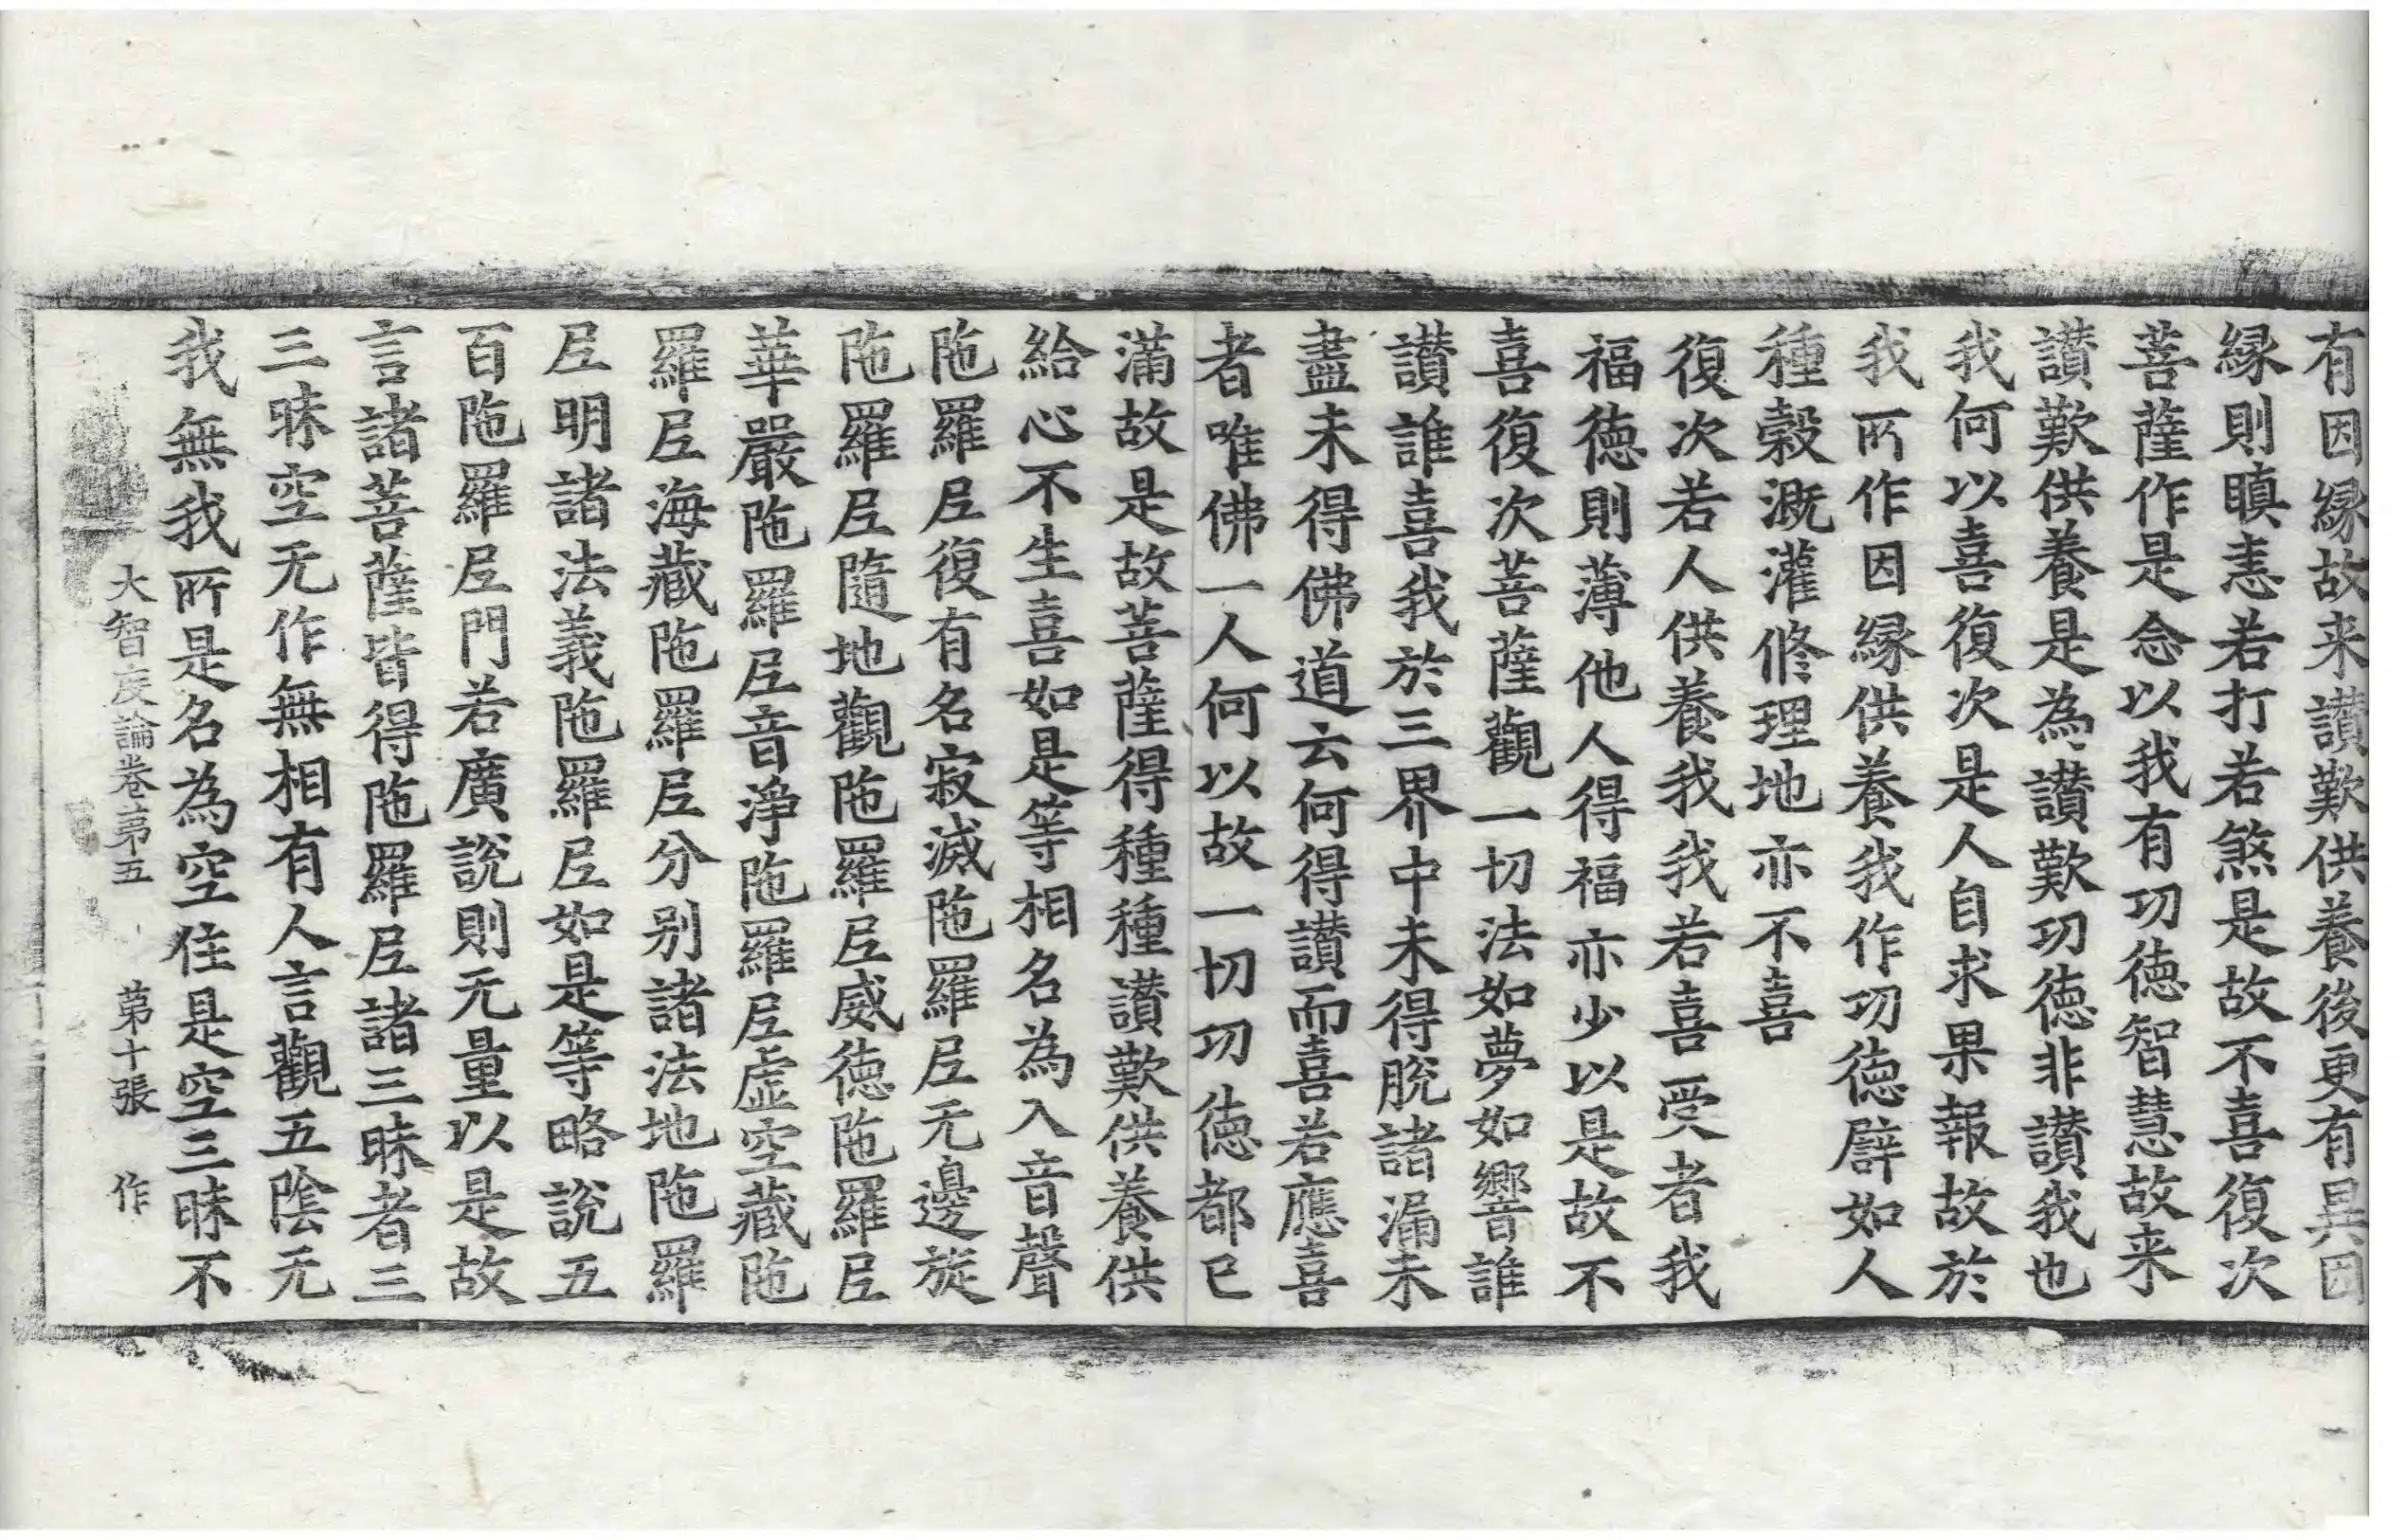 有因縁故来讃歎供養後更有異因
縁則瞋恚若打若煞是故不喜復次
菩薩作是念以我有功徳智慧故来
讃歎供養是為讃歎功徳非讃我也
我何以喜復次是人自求果報故於
我所作因縁供養我作功徳辟如人
種穀溉灌修理地亦不喜
復次若人供養我我若喜受者我
福徳則薄他人得福亦少以是故不
喜復次菩薩觀一切法如夢如響誰
讃誰喜我於三界中未得脫諸漏未
盡未得佛道云何得讃而喜若應喜
者唯佛一人何以故一切功徳都已
滿故是故菩薩得種種讃歎供養供
給心不生喜如是等相名為入音聲
陁羅尼復有名寂滅陁羅尼无邊旋
陁羅尼隨地觀陁羅尼威徳陁羅尼
華嚴陁羅尼音淨陁羅尼虚空藏陁
羅尼海藏陁羅尼分别諸法地陁羅
尼明諸法義陁羅尼如是等略說五
百陁羅尼門若廣說則无量以是故
言諸菩薩皆得陁羅尼諸三昧者三
三昧空无作無相有人言觀五陰无
我無我所是名為空住是空三昧不
大智度論卷第五 第十張 作